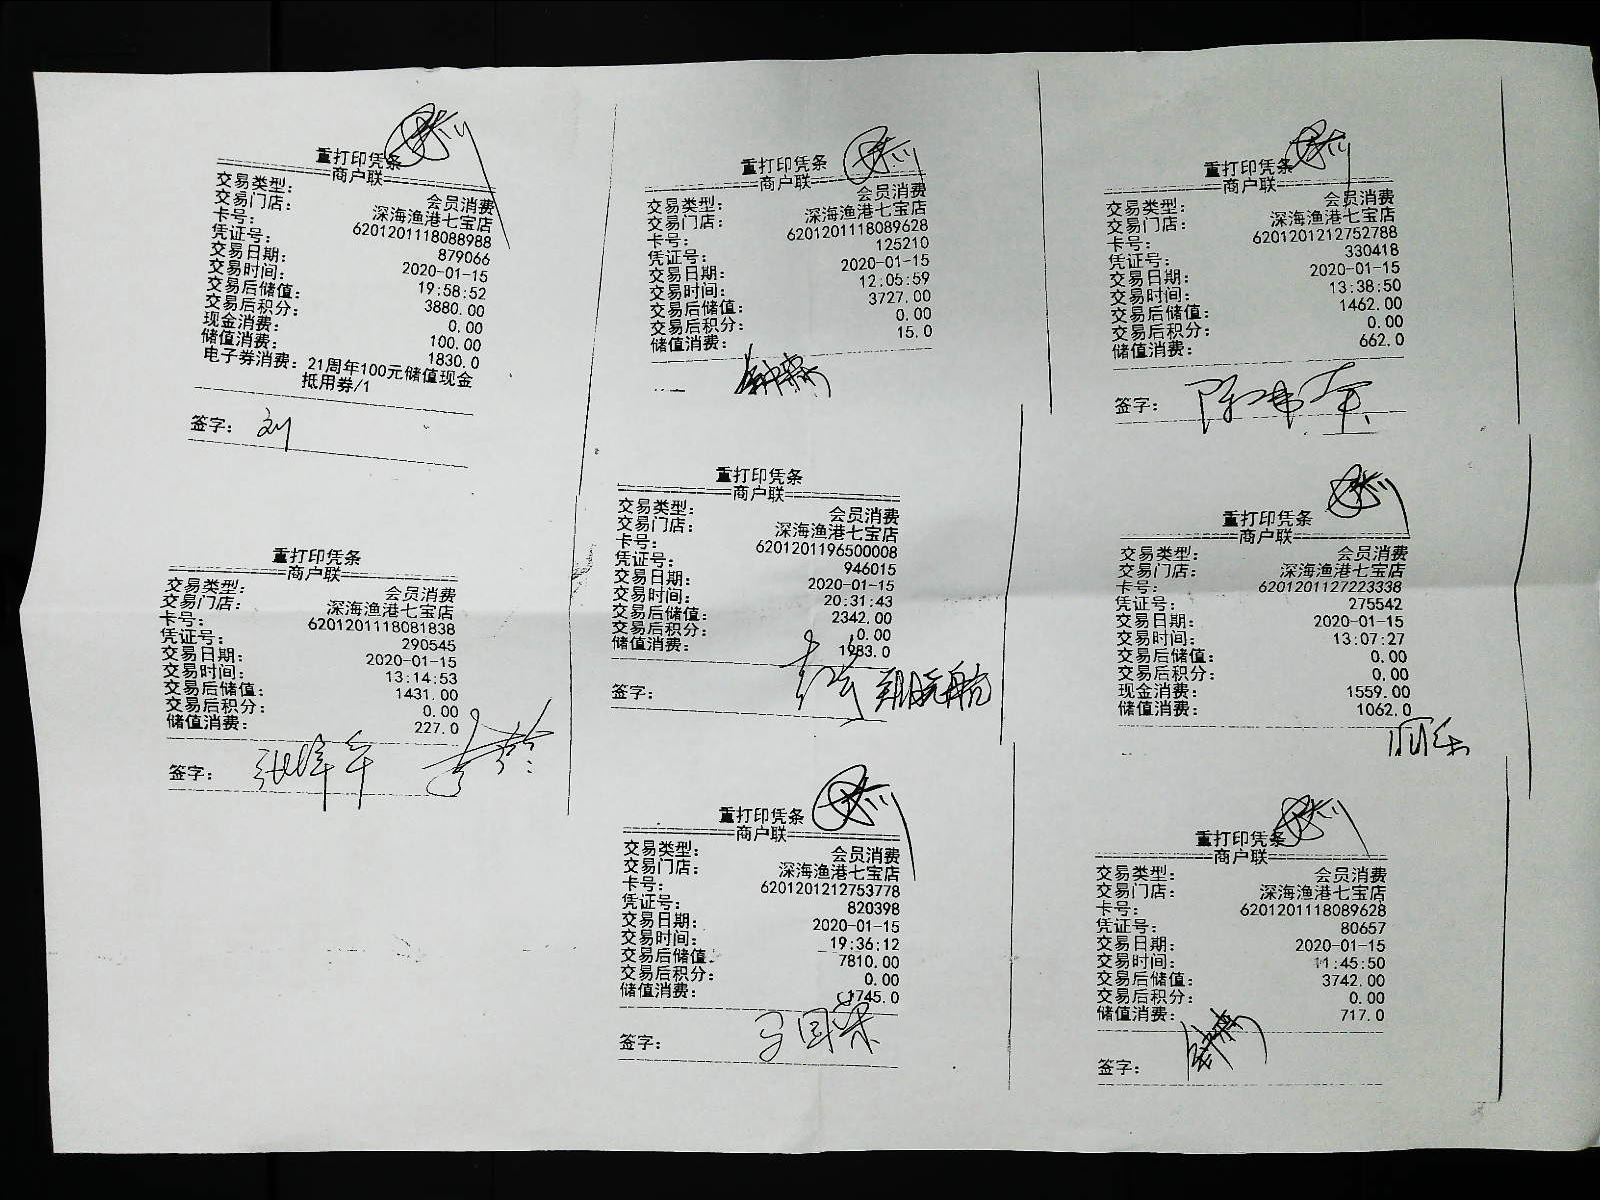 重打印凭条
商户联
交易类型： 会员消费
交易门店： 深海渔港七宝店
卡号： 6201201118088988
凭证号： 879066
交易日期： 2020-01-15
交易时间： 19:58:52
交易后储值： 3880.00
交易后积分： 0.00
现金消费： 100.00
储值消费： 1830.0
电子券消费：21周年100元储值现金
抵用券/1
签字： 刘
重打印凭条
商户联
交易类型： 会员消费
交易门店： 深海渔港七宝店
卡号： 6201201118089628
凭证号： 125210
交易日期： 2020-01-15
交易时间： 12:05:59
交易后储值： 3727.00
交易后积分： 0.00
储值消费： 15.0
重打印凭条
商户联
交易类型： 会员消费
交易门店： 深海渔港七宝店
卡号： 6201201212752788
凭证号： 330418
交易日期： 2020-01-15
交易时间： 13:38:50
交易后储值： 1462.00
交易后积分： 0.00
储值消费： 662.0
签字：
重打印凭条
商户联
交易类型： 会员消费
交易门店： 深海渔港七宝店
卡号： 6201201118081838
凭证号： 290545
交易日期： 2020-01-15
交易时间： 13:14:53
交易后储值： 1431.00
交易后积分： 0.00
储值消费： 227.0
签字：
重打印凭条
商户联
交易类型： 会员消费
交易门店： 深海渔港七宝店
卡号： 6201201196500008
凭证号： 946015
交易日期： 2020-01-15
交易时间： 20:31:43
交易后储值： 2342.00
交易后积分： 0.00
储值消费： 1983.0
签字：
重打印凭条
商户联
交易类型： 会员消费
交易门店： 深海渔港七宝店
卡号： 6201201127223338
凭证号： 275542
交易日期： 2020-01-15
交易时间： 13:07:27
交易后储值： 0.00
交易后积分： 0.00
现金消费： 1559.00
储值消费： 1062.0
重打印凭条
商户联
交易类型： 会员消费
交易门店： 深海渔港七宝店
卡号： 6201201212753778
凭证号： 820398
交易日期： 2020-01-15
交易时间： 19:36:12
交易后储值： 7810.00
交易后积分： 0.00
储值消费： 1745.0
签字： 马国荣
重打印凭条
商户联
交易类型： 会员消费
交易门店： 深海渔港七宝店
卡号： 6201201118089628
凭证号： 80657
交易日期： 2020-01-15
交易时间： 11:45:50
交易后储值： 3742.00
交易后积分： 0.00
储值消费： 717.0
签字：